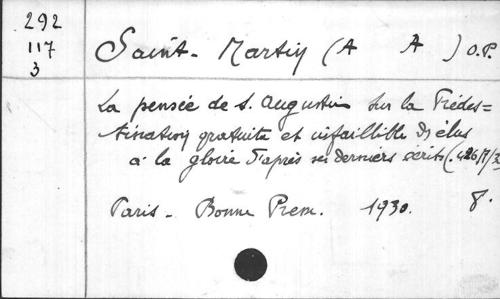 292
117
3
Saint-Martin (A A) O.P.
La pensée de S. Augustin sur la Prédes=
tination gratuite et infaillible des élus
à la gloire d'après ses derniers écrits (.426/7/3
Paris - Bonne Presse. 1930. 8.